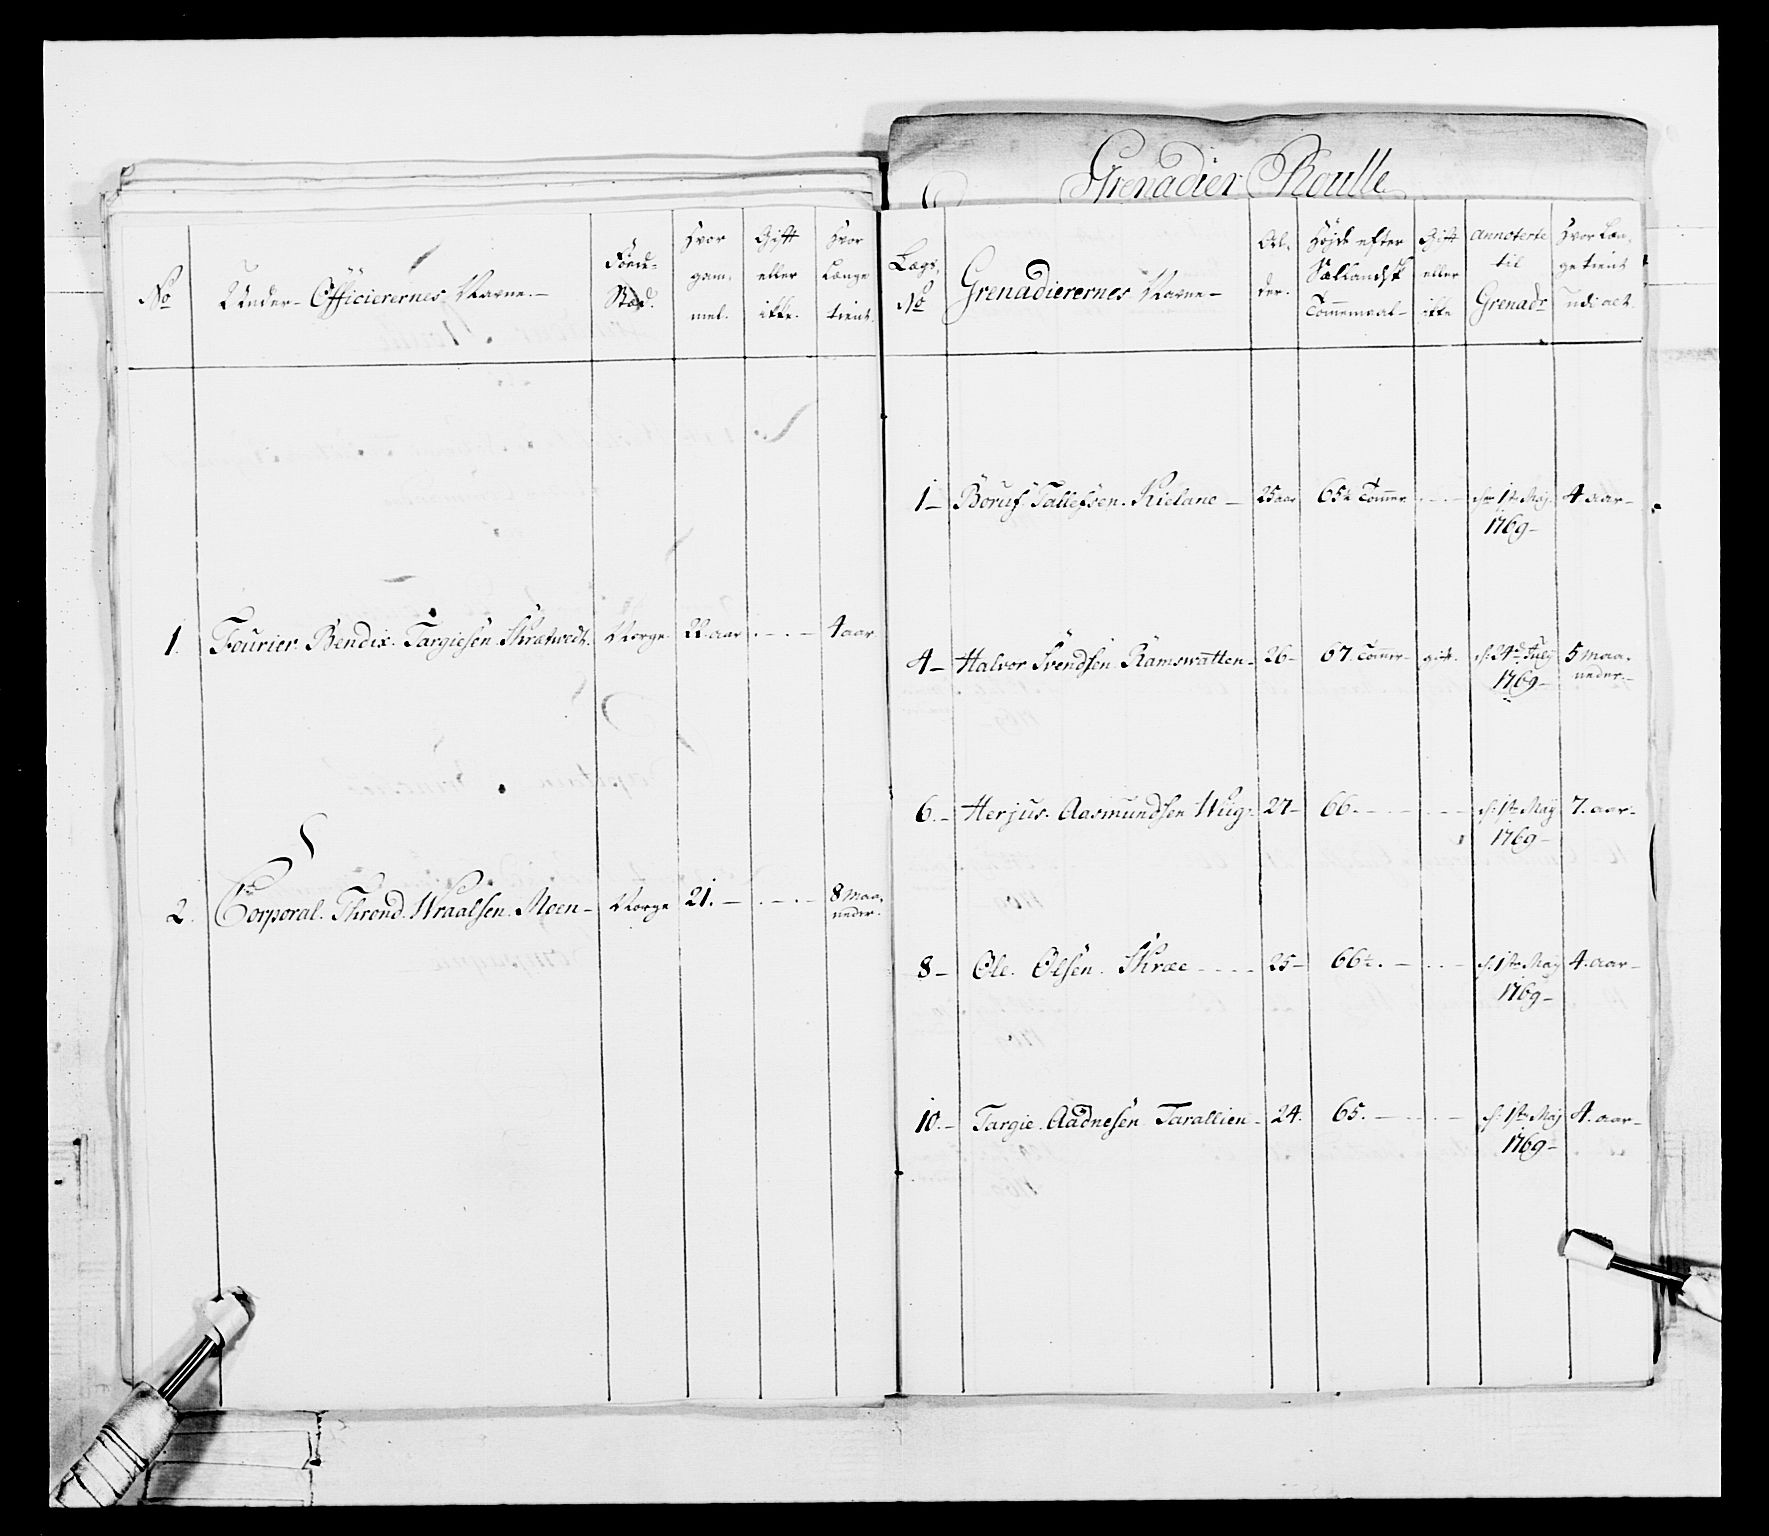 Grenadier Roulle
No
Under-Officierernes Navne.-
Føde-
Stæd.
Hvor
gam-
mel.
Gift
eller
ikke.
Hvor
Længe
tient.
1. Fourier. Bendix. Targiesen. Norge. 22. aar . - . - 4 aar
2. Corporal. Thrond. Wraalsen. Moen- Norge 21. - . - . - 8 Maa-
neder.
Lægs,
No
Grenadierernes Navne-
Al-
der.
Højde efter
Sællandsk
Tommemaal-
Gift
eller
ikke
Annoterte
til
Grenadr
Hvor Læn-
ge tient
udi alt.
1- Tallefsen. Kieland - 25 aar 65½ Tommer . . . - 1ste Maj. 4 aar-
1769-
4- Halvor Svendsen. Ramswatten- 26- 67. Tommer- gift. d. 24de July 5 Maa-
1769- neder.-
6.- Herjus. Aasmundsen Hug- 27- 66. - . - . - d. 1ste May 7. aar-
1769-
8- Ole. Olsen. Skræe - - - - 25- 66½. - . . - d. 1ste May 4. aar-
1769-
10.- Targie. Aadnesen Tarallien- 24. 65. - . - . - d. 1ste Maj 4. aar-
1769-